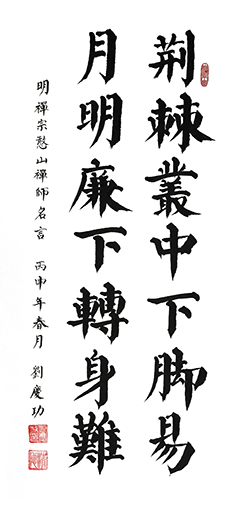 荆棘叢中下脚易
月明廉下轉身難
明禪宗憨山禪師名言 丙申年春月 劉慶功